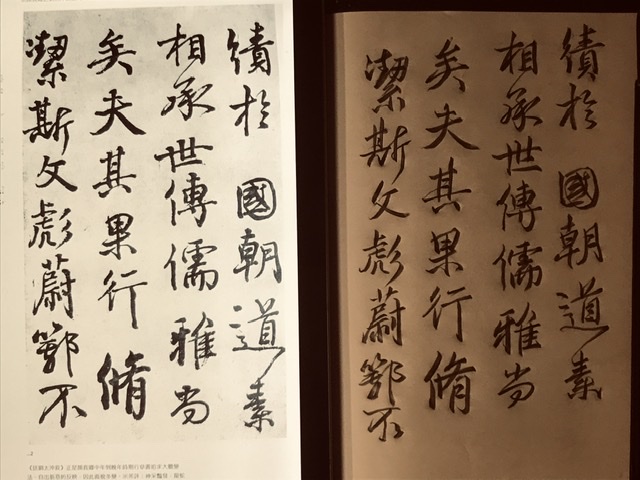 績於 國朝道素
相承世傳儒雅尚
矣夫其果行脩
潔斯文彪蔚鄂不
績於 國朝道素
相承世傳儒雅尚
矣夫其果行脩
潔斯文彪蔚鄂不